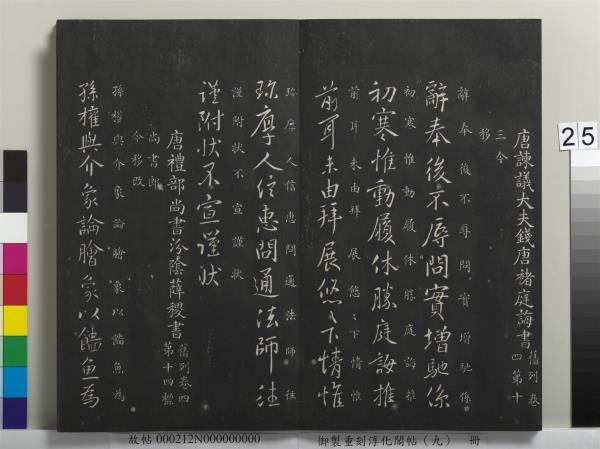 唐諫議大夫錢唐褚庭誨書 舊列卷四第十
三今移
辭奉後不辱問實增馳係
辭奉後不辱問實增馳係
初寒惟動履休勝庭誨推
初寒惟動履休勝庭誨推
前耳未由拜展悠〻下情惟
前耳未由拜展悠〻下情惟
珎摩人信惠問通法師往
珎摩人信惠問通法師往
謹附狀不宣謹狀
謹附狀不宣謹狀
唐禮部尚書汾陰薛稷書 舊列卷四第十四標
尚書郎今移改
孫權與介象論膾象以鯔魚為
孫權與介象論膾象以鯔魚為
25
故帖 000212N000000000 御製重刻淳化閣帖（九） 冊